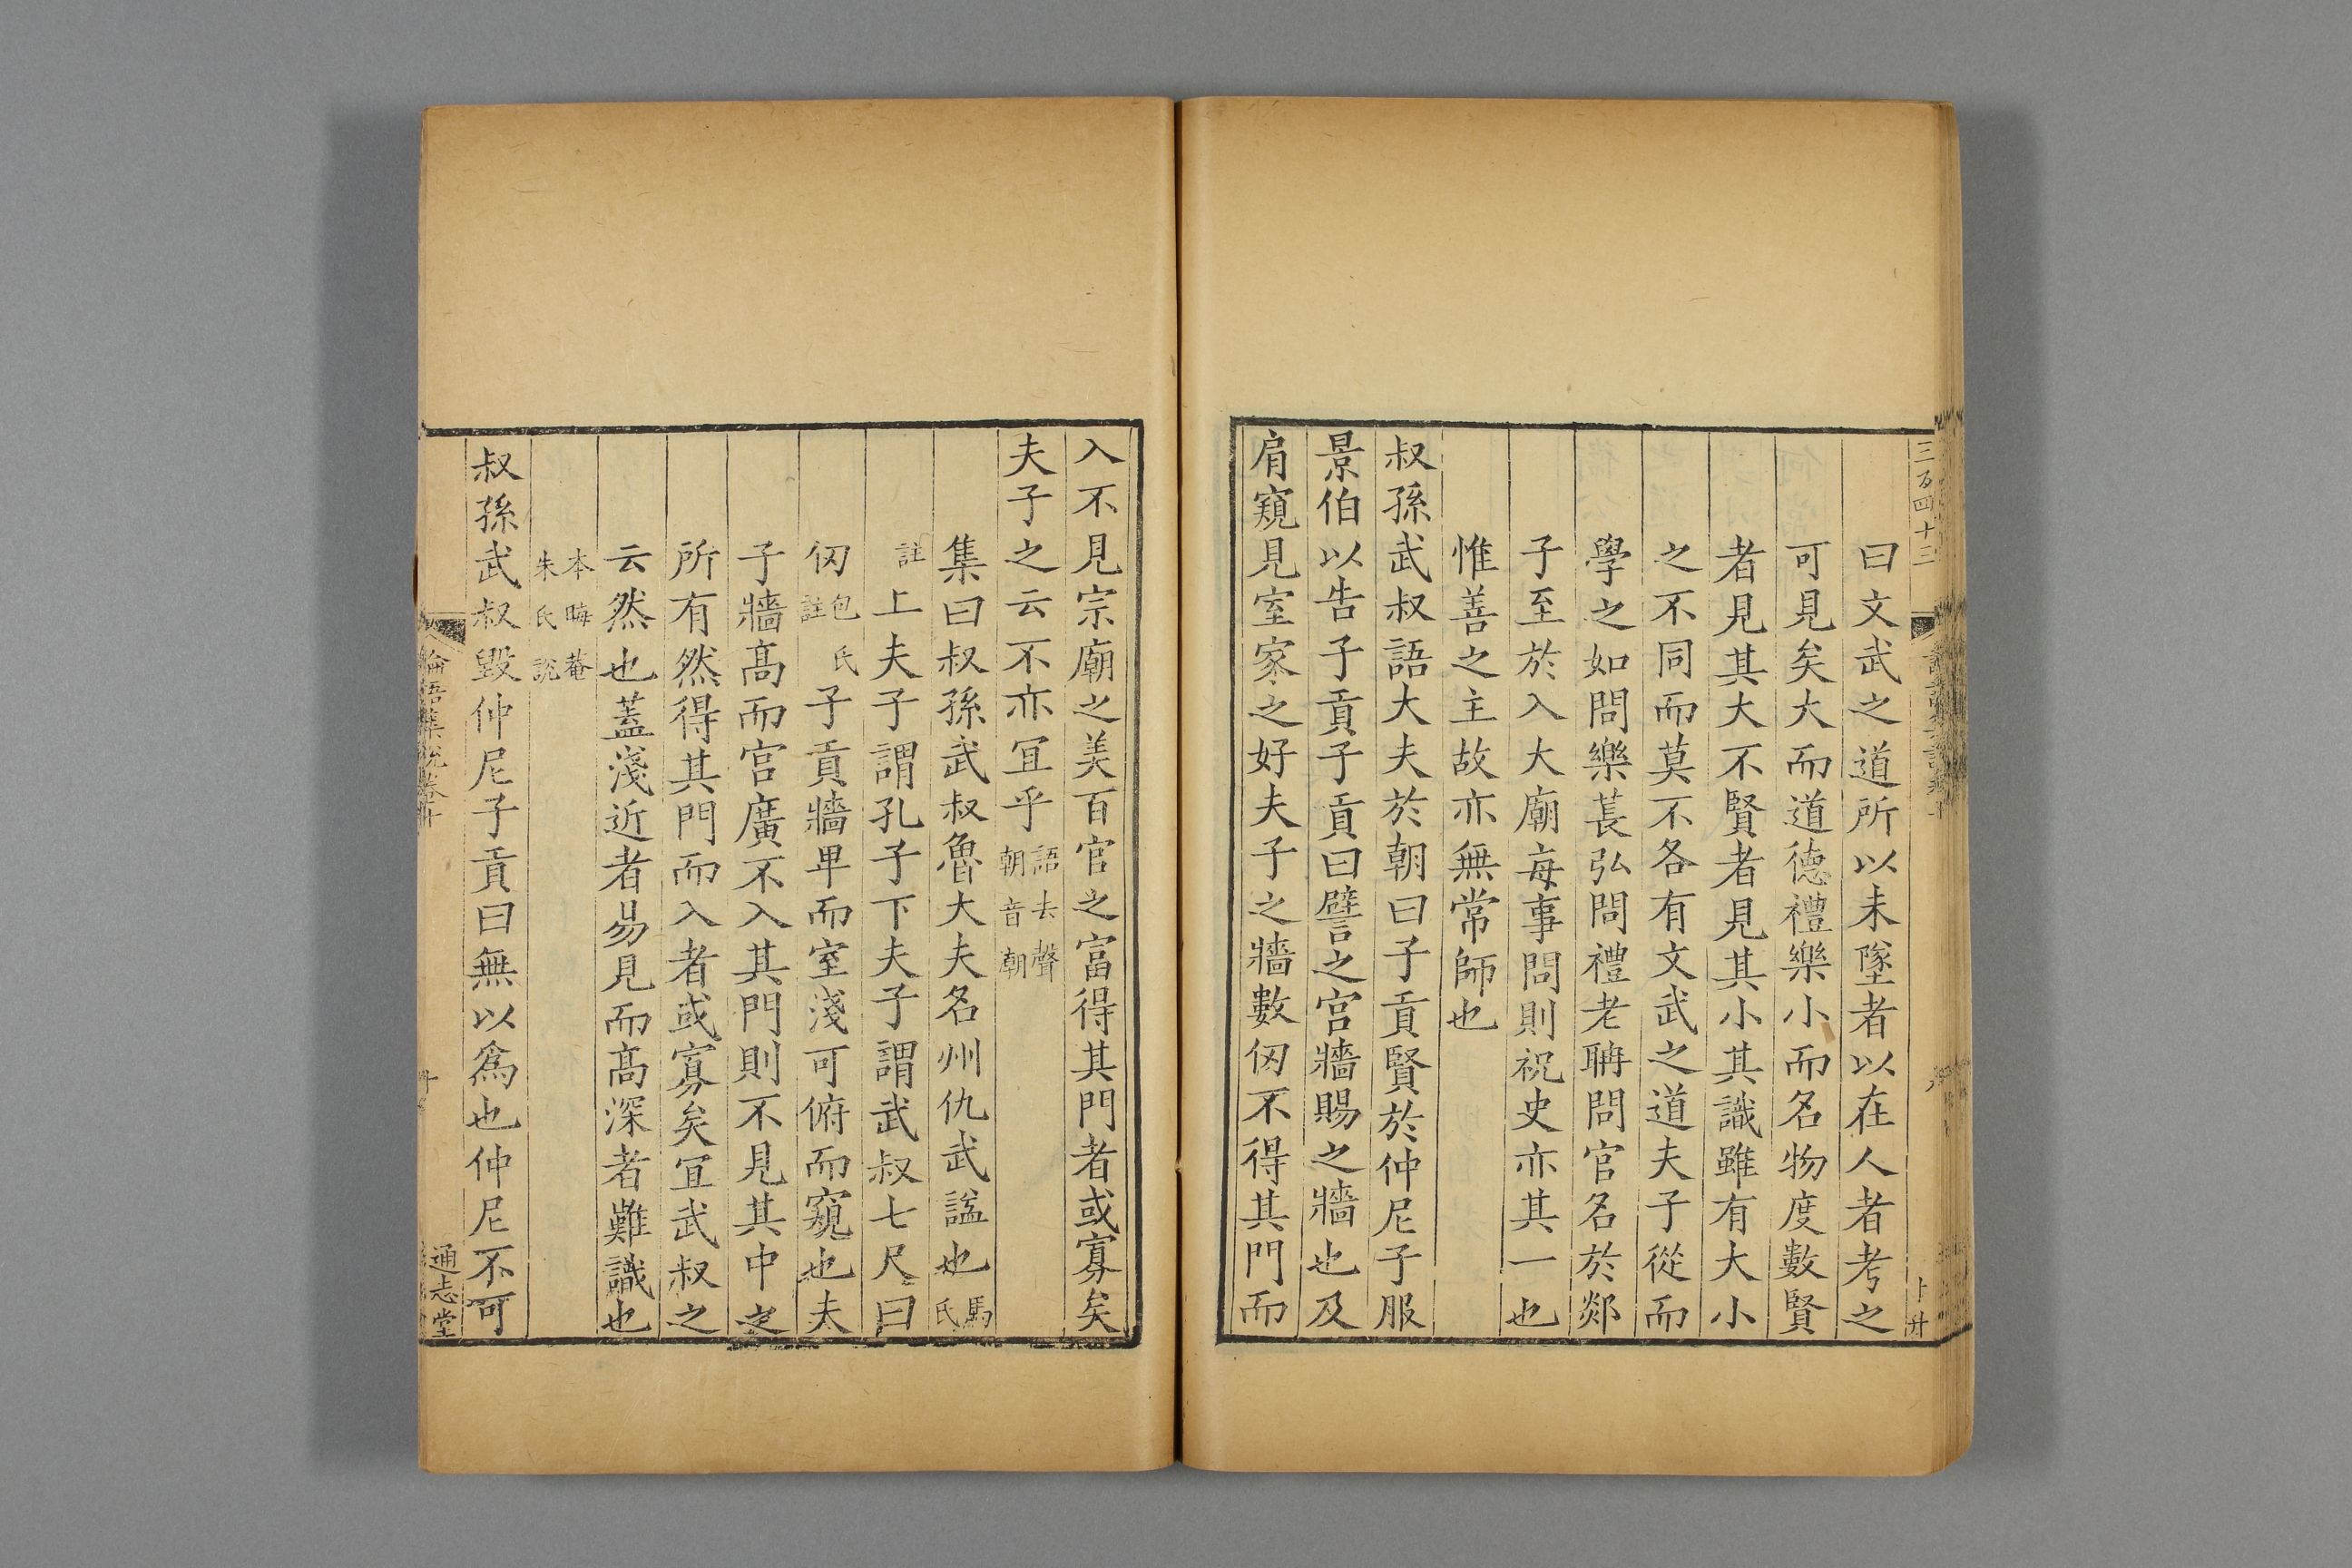 三百四十三
曰文武之道所以未墜者以在人者考之
可見矣大而道德禮樂小而名物度數賢
者見其大不賢者見其小其識雖有大小
之不同而莫不各有文武之道夫子從而
學之如問樂萇弘問禮老聃問官名於郯
子至於入大廟每事問則祝史亦其一也
惟善之主故亦無常師也
叔孫武叔語大夫於朝曰子貢賢於仲尼子服
景伯以告子貢子貢曰譬之宮牆賜之牆也及
肩窺見室家之好夫子之牆數仞不得其門而
入不見宗廟之美百官之富得其門者或寡矣
夫子之云不亦宜乎語去聲朝音朝
集曰叔孫武叔魯大夫名州仇武諡也馬氏
註上夫子謂孔子下夫子謂武叔七尺曰
仞包氏註子貢牆卑而室淺可俯而窺也夫
子牆高而宮廣不入其門則不見其中之
所有然得其門而入者或寡矣宜武叔之
云然也蓋淺近者易見而高深者難識也
本晦菴朱氏說
叔孫武叔毀仲尼子貢曰無以爲也仲尼不可
論語集說卷十
通志堂